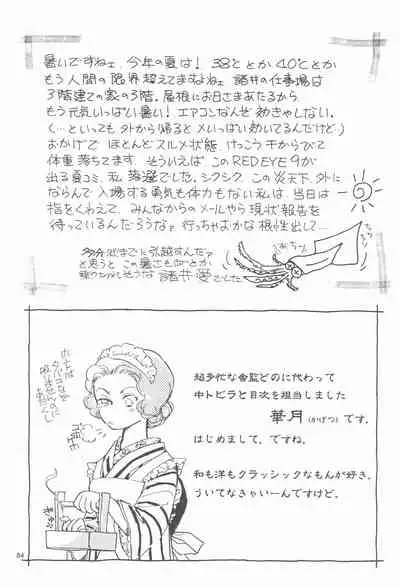 暑いですねェ、今年の夏は！ 38℃とか40℃とか
もう人間の限界超えてますよねェ 諸井の仕事場は
3階建ての家の3階。屋根にお日さまあたるから
もう元気いっぱい暑い！エアコンなんぞ効きゃしない。
(…といっても外から帰るとメいっぱい効いてるんだけど)
おかげでほとんどスルメ状態 けっこう干からびて
体重落ちてます。そういえばこのREDEYE9が
出る夏コミ、私落選でした。シクシク この炎天下、外に
ならんで入場する勇気も体力もない私は、当日は
指をくわえて、みんなからのメールやら現状報告を
待っているんだろうなァ 行っちゃおかな根性出して…
と思うと この暑さも
諸井 愛でした
超多忙な舎監どのに代わって
中トビラと目次を担当しました
華月(かげつ)です。
はじめまして、ですね。
和も洋もクラッシックなもんが好き。
ういてなきゃいーんですけど。
84